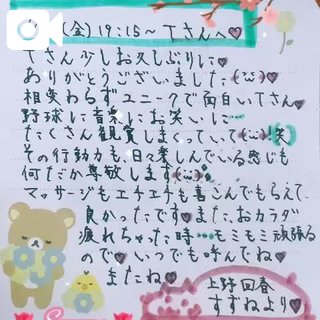 (金) 19:15〜Tさんへ♥
Tさん少しお久しぶりに♥
ありがとうございました(•ᴗ•)♥
相変わらずユニークで面白いTさん♥
野球に音楽にお笑いに…
たくさん観賞しまくっていて(•ᴗ•)!笑
その行動力も、日々楽しんでいる感じも
何だか尊敬します(•ᴗ•)
マッサージもエチエチも喜こんでもらえて
良かったです♥またおカラダ
疲れちゃった時…モミモミ頑張る
ので♥いつでも呼んでね♥
またね♥
上野回春
すずねより♥